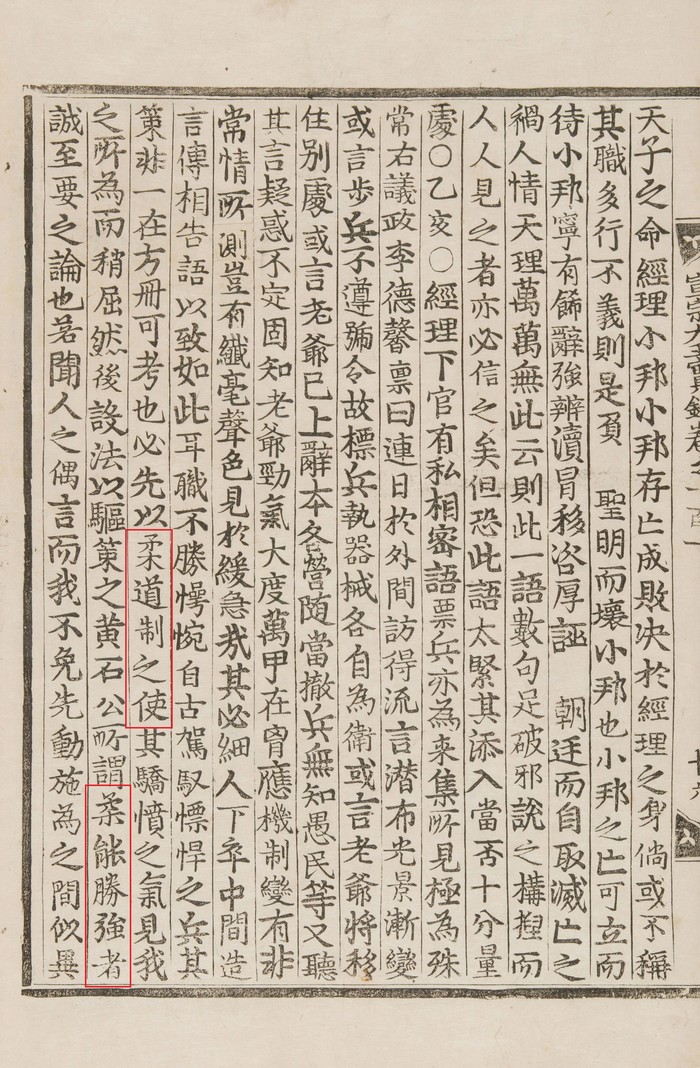 天子之命經理小邦小邦存亡成敗决於經理之身倘或不稱
其職多行不義則是負 聖明而壞小邦也小邦之亡可立而
待小邦寧有餙辭強辨瀆冒移咨厚誣 朝廷而自取滅亡之
禍人情天理萬萬無此云則此一語數句足破邪說之構揑而
人人見之者亦必信之矣但恐此語太緊其添入當否十分量
處○乙亥○經理下官有私相密語票兵亦為來集所見極為殊
常右議政李德馨禀曰連日於外間訪得流言潜布光景漸變
或言步兵不遵號令故標兵執器械各自為衛或言老爺將移
住別處或言老爺已上辭本各營随當撤兵無知愚民等又聽
其言疑惑不定固知老爺勁氣大度萬甲在胷應機制變有非
常情所測豈有纖毫聲色見於緩急㢤其必細人下卒中間造
言傳相告語以致如此耳職不勝愕惋自古駕馭慓悍之兵其
策非一在方冊可考也必先以柔道制之使其驕憤之氣見我
之所為而稍屈然後設法以驅策之黄石公所謂柔能勝強者
誠至要之論也若聞人之偶言而我不免先動施為之間似異